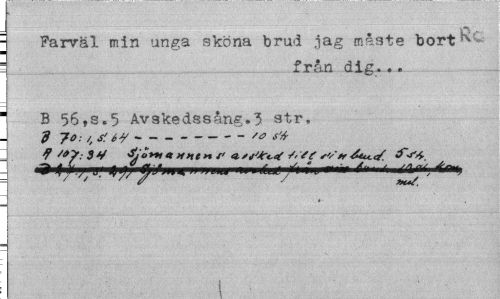 Farväl min unga sköna brud jag måste bort Ra
från dig...
B 56,s.5 Avskedssång.3 str.
B 70:1,s.64 - - - - - - - - 10 str
A 107:34 Sjömannens avsked till sin brud. 5 str.
Sjömannens avsked från sin
mel.